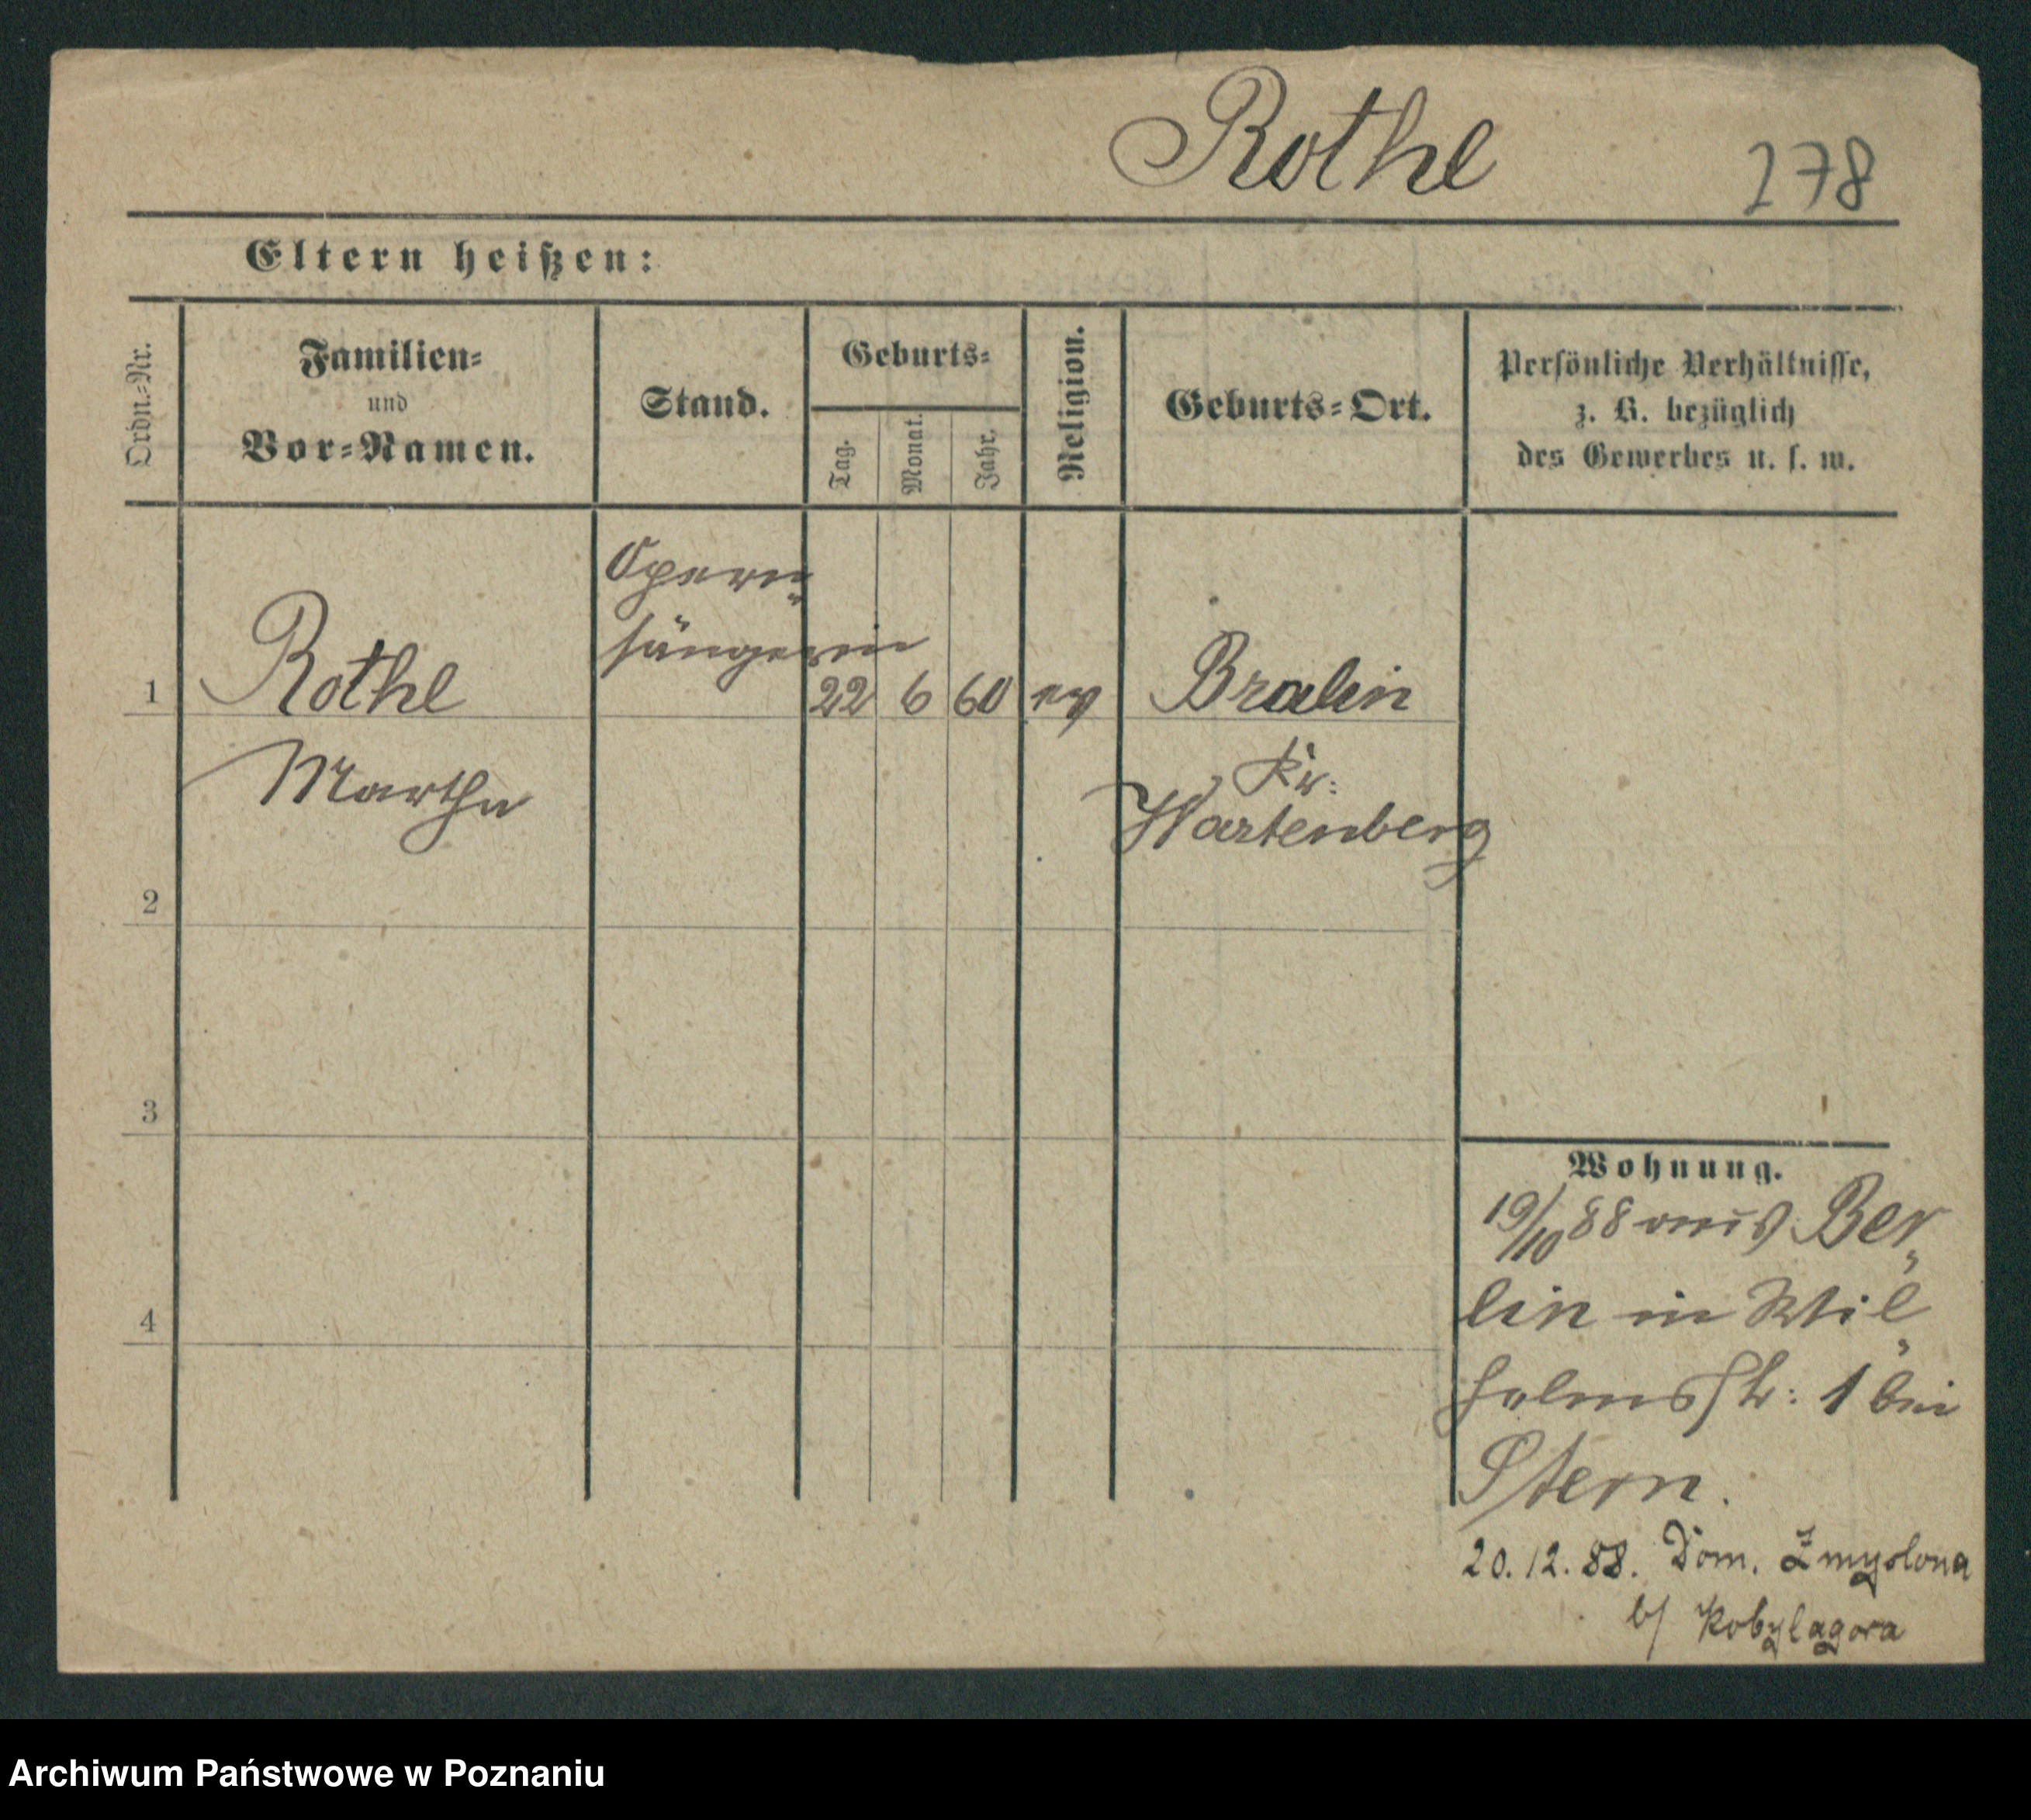 Rothe
278
Eltern heißen:
Ordn.=Nr.
Familien=
und
Vor=Namen.
Stand.
Geburts=
Tag.
Monat.
Jahr.
Religion.
Geburts=Ort.
Persönliche Verhältnisse,
z. B. bezüglich
des Gewerbes u. s. w.
1
Rothe
Martha
Opern=
sängerin
22 6 60 ev
Bralin
Kr:
Wartenberg
2
3
4
Wohnung.
19/10 88 aus Ber=
lin in Wil=
helmsstr: 1 bei
Stern.
20.12.88. Dom. Zmyslona
b/ Kobylagora
Archiwum Państwowe w Poznaniu